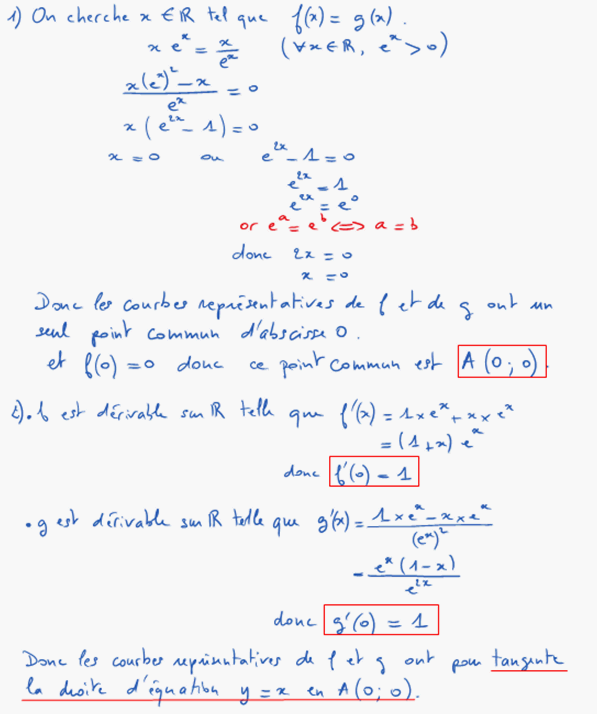 1) On cherche x ∈ ℝ tel que f(x) = g(x).
x e^x = x/e^x (∀x ∈ ℝ, e^x > 0)
(x(e^x)^2 - x)/e^x = 0
x (e^{2x} - 1) = 0
x = 0 ou e^{2x} - 1 = 0
e^{2x} = 1
e^{2x} = e^0
or e^a = e^b <=> a = b
donc 2x = 0
x = 0
Donc les courbes représentatives de f et de g ont un
seul point commun d'abscisse 0.
et f(0) = 0 donc ce point commun est A (0 ; 0)
2). f est dérivable sur ℝ telle que f'(x) = 1 × e^x + x × e^x
= (1 + x) e^x
donc f'(0) = 1
• g est dérivable sur ℝ telle que g'(x) = (1 × e^x - x × e^x)/(e^x)^2
= e^x (1 - x)/e^{2x}
donc g'(0) = 1
Donc les courbes représentatives de f et g ont pour tangente
la droite d'équation y = x en A(0 ; 0).